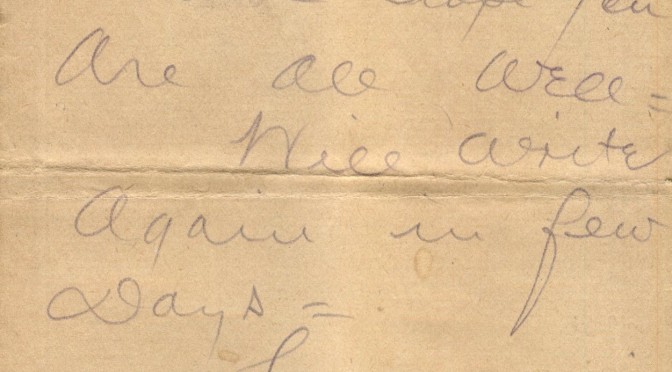 hope you
Are all well =
Will write
Again in few
Days =